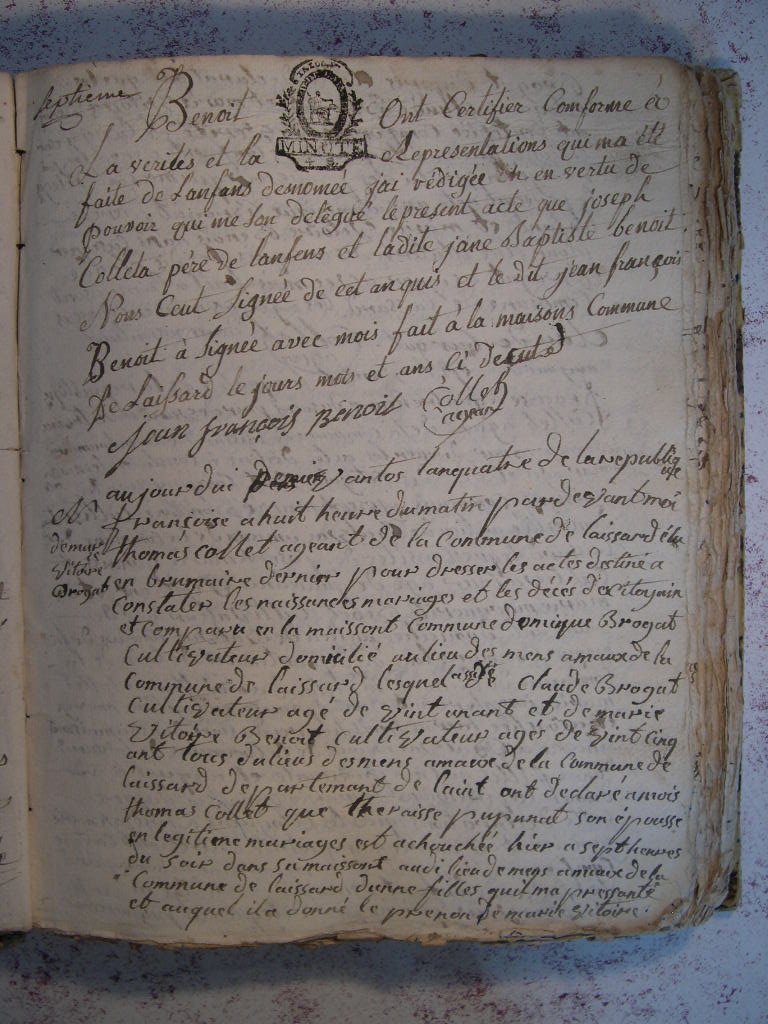 septieme Benoit Ont Certifier Comforme à
MINUTE
La verités et la Representations qui ma été
faite de Lanfans desnomee jai rédigée en en vertu de
pouvoir qui me son delégué lepresent acte que joseph
Colleta pére de lanfens et ladite jane Baptiste benoit
Nous Ceut Signée de cet anquis et le dit jean françois
Benoit à Signée avec mois fait à la maisons Commune
De Laissard le jours mois et ans ci desuts
jean françois Benoit Collet
agean
aujourdui vantos lanquatre de la republique
françoise a huit heure dumatin pardevantmoi
thomas collet ageant de la Commune de laissard élu
en brumaire dernier pour dresser les actes destiné a
Constater les naissances mariages et les décés
et Comparu en la maissont Commune domique Brogat
Cultivateur domicilié aulieu des mens amaux de la
Commune de laissard lesquel assisté Claude Brogat
Cultivateur agé de vint unant et de marie
vitoire Benoit Cultivateur agés de vint cinq
ant tous dulieus desmens amaux de la Commune de
laissard departemant de laint ont declaré amois
thomas Collet que theraisse pupunat son épousse
en legitime mariages est achouchée hier a septheures
du soir dans sa maissont audi lieu de mens amaux de la
Commune de laissard dunne filles quil ma pressanté
et auquel il a donné le prenon de marie vitoire.
N
demarie
vitoire
Brogat